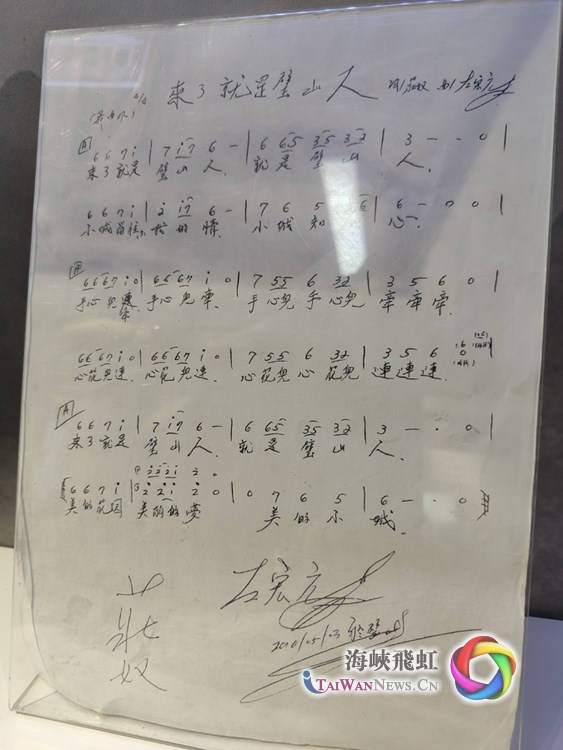 來了就是璧山人 詞/莊奴 曲/左宏元
4/4
A 6 6 7 i | 7 i7 6 - | 6 65 35 32 | 3 - - 0 |
來了就是 璧山人. 就是璧山人.
6 6 7 i | 2 i7 6 - | 7 6 5 6 | 6 - 0 0 |
小城 的情. 小城知心.
B 6667 i 0 | 6667 i 0 | 7 55 6 32 | 3 5 6 0 |
手心兒牽 手心兒牽. 手心兒手心兒 牽牽牽.
6667 i 0 | 6667 i 0 | 7 55 6 32 | 3 5 6 0
心花兒連 心花兒連. 心花兒心花兒 連連連.
A 6 6 7 i | 7 i7 6 - | 6 65 35 32 | 3 - - 0 |
來了就是 璧山人. 就是璧山人.
6 6 7 i 2 2 2 i 2 0 | 0 7 6 5 | 6 - - 0
美的花園 美的夢 美的小城.
莊奴
左宏元
2016/05/03 於璧山
海峽飛虹
TAIWANNEWS.CN